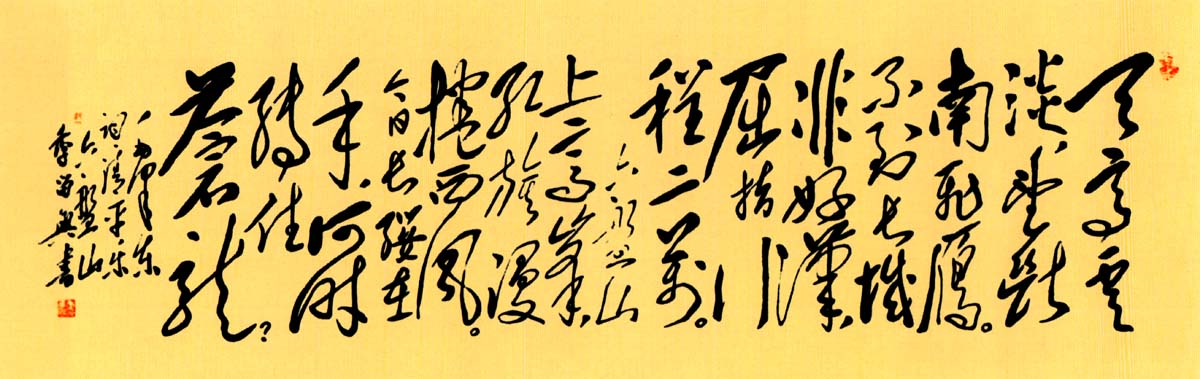 天高云
淡,望断
南飞雁。
不到长城
非好漢,
屈指行
程二萬。
六盘山
上高峰,
红旗漫
捲西风。
今日长缨在
手,何时
缚住
苍龙?
东
词清平乐
六盘山
海兴书